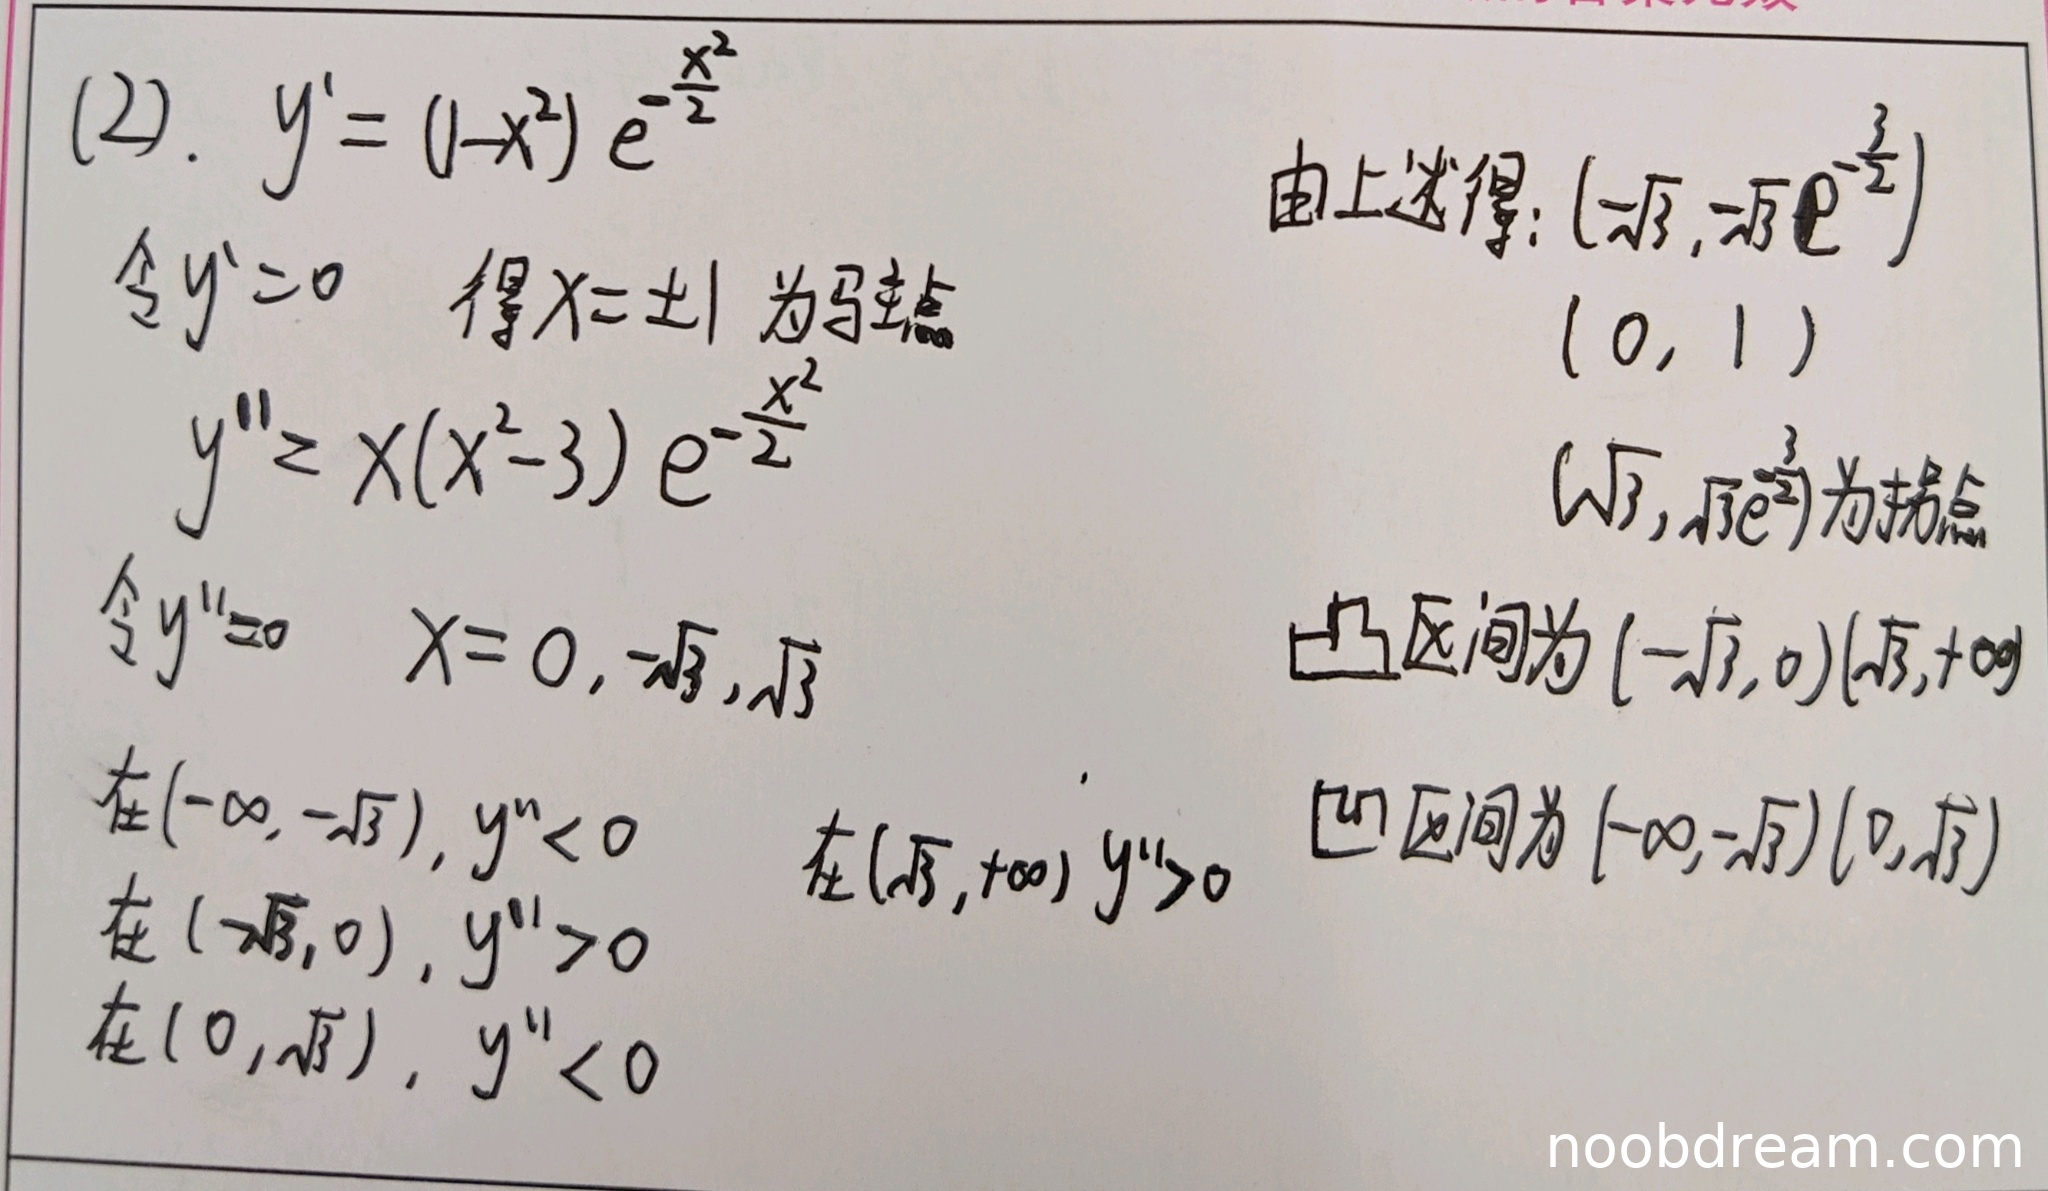 (2). y' = (1-x²) e^{-\frac{x²}{2}}
令y'=0 得x=±1 为驻点
y''= x(x²-3) e^{-\frac{x²}{2}}
令y''=0 x=0, -√3, √3
在(-∞, -√3), y''<0
在(-√3, 0), y''>0
在(0, √3), y''<0
在(√3, +∞) y''>0
由上述得: (-√3, -√3e^{-\frac{3}{2}})
(0, 1)
(√3, √3e^{-\frac{3}{2}})为拐点
凸区间为(-√3, 0)(√3, +∞)
凹区间为(-∞, -√3)(0, √3)
noobdream.com